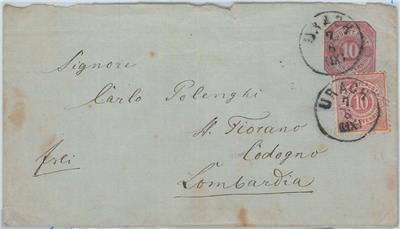 Signore
Carlo Polenghi
S. Fiorano
Codogno
Lombardia
frei
10
URACH
7
8
10
URACH
7
8